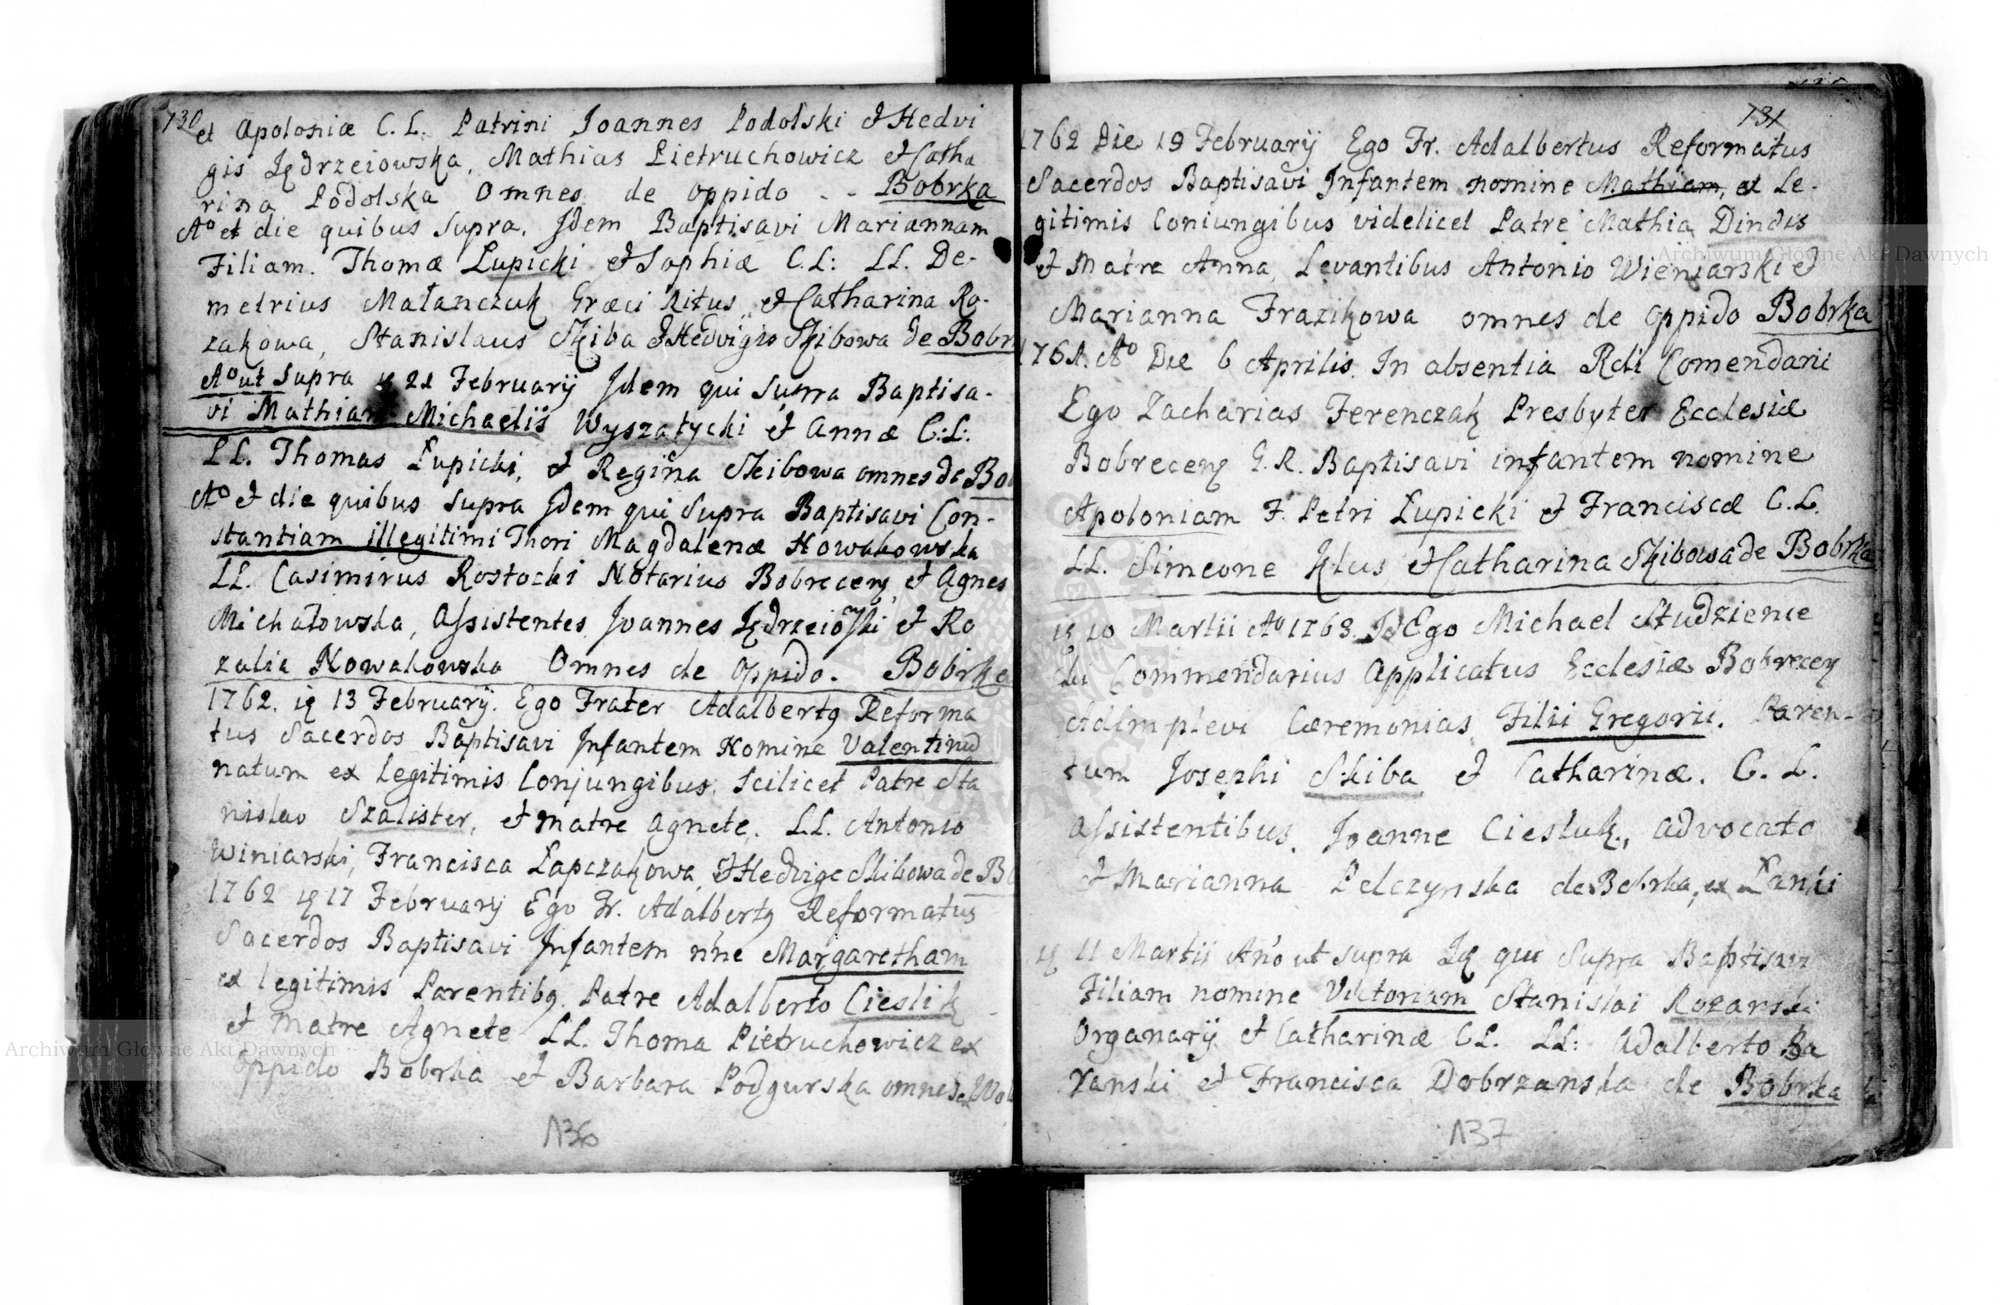 730
et Apoloniæ C. L. Patrini Joannes Podolski et Hedvi
gis Jędrzeiowska, Mathias Pietruchowicz et Catha
rina Podolska Omnes de oppido - - Bobrka
Aº et die quibus supra. Jdem Baptisavi Mariannam
Filiam Thomæ Łupicki et Sophiæ C. L: LL. De-
metrius Małanczuk Græci Ritus, et Catharina Ro-
zakowa, Stanislaus Skiba et Hedvigis Skibowa de Bobr
Aº ut supra 21 February Jdem qui supra Baptisa-
vi Mathiam Michaelis Wyszatycki et Annæ C: L:
LL. Thomas Łupicki, et Regina Skibowa omnes de Bo
Aº et die quibus supra Jdem qui supra Baptisavi Con-
stantiam illegitimi Thori Magdalenæ Nowakowska
LL. Casimirus Rostocki Notarius Bobrecens, et Agnes
Michałowska, Assistentes Joannes Jędrzeiowski et Ro
zalia Nowakowska Omnes de Oppido. Bobrka
1762. 13 February. Ego Frater Adalbertq Reforma
tus Sacerdos Baptisavi Jnfantem Nomine Valentinū
natum ex legitimis Conjungibus, scilicet Patre Sta
nislao Szalister, et Matre Agnete. LL. Antonio
Winiarski, Francisca Łapczakowa, et Hedvige Skibowa de B
1762 17 February Ego Fr. Adalbertq Reformatus
Sacerdos Baptisavi Jnfantem nn̄e Margaretham
ex legitimis Parentibq. Patre Adalberto Cieslik
et Matre Agnete LL. Thoma Pietruchowicz ex
Oppido Bobrka et Barbara Podgurska omnes
136
731
1762 Die 19 February Ego Fr. Adalbertus Reformatus
Sacerdos Baptisavi Jnfantem nomine Mathiam, ex Le-
gitimis Coniungibus videlicet Patre Mathia Dindis
et Matre Anna, Levantibus Antonio Wieniarski et
Marianna Frazikowa omnes de Oppido Bobrka
1761. Aº Die 6 Aprilis. In absentia Rdi Comendarii
Ego Zacharias Ferenczak Presbyter Ecclesiæ
Bobrecens G. R. Baptisavi infantem nomine
Apoloniam F. Petri Łupicki et Franciscæ C. L.
LL. Simeone Klus et Catharina Skibowa de Bobrka
10 Martii Aº 1763. Ego Michael Studzienie
cki Commendarius Applicatus Ecclesiæ Bobrecen
Adimplevi Cæremonias Filii Gregorii. Paren-
tum Josephi Skiba et Catharinæ. C. L.
Assistentibus. Joanne Ciesluk, advocato
et Marianna Pelczynska de Bobrka, ex Łanki
11 Martii Año ut supra qui Supra Baptisavi
Filiam nomine Victoriam Stanislai Rozarski
Organary et Catharinæ CL. LL: Adalberto Ba
ranski et Francisca Dobrzanska de Bobrka
137
Archiwum Główne Akt Dawnych
Archiwum Główne Akt Dawnych